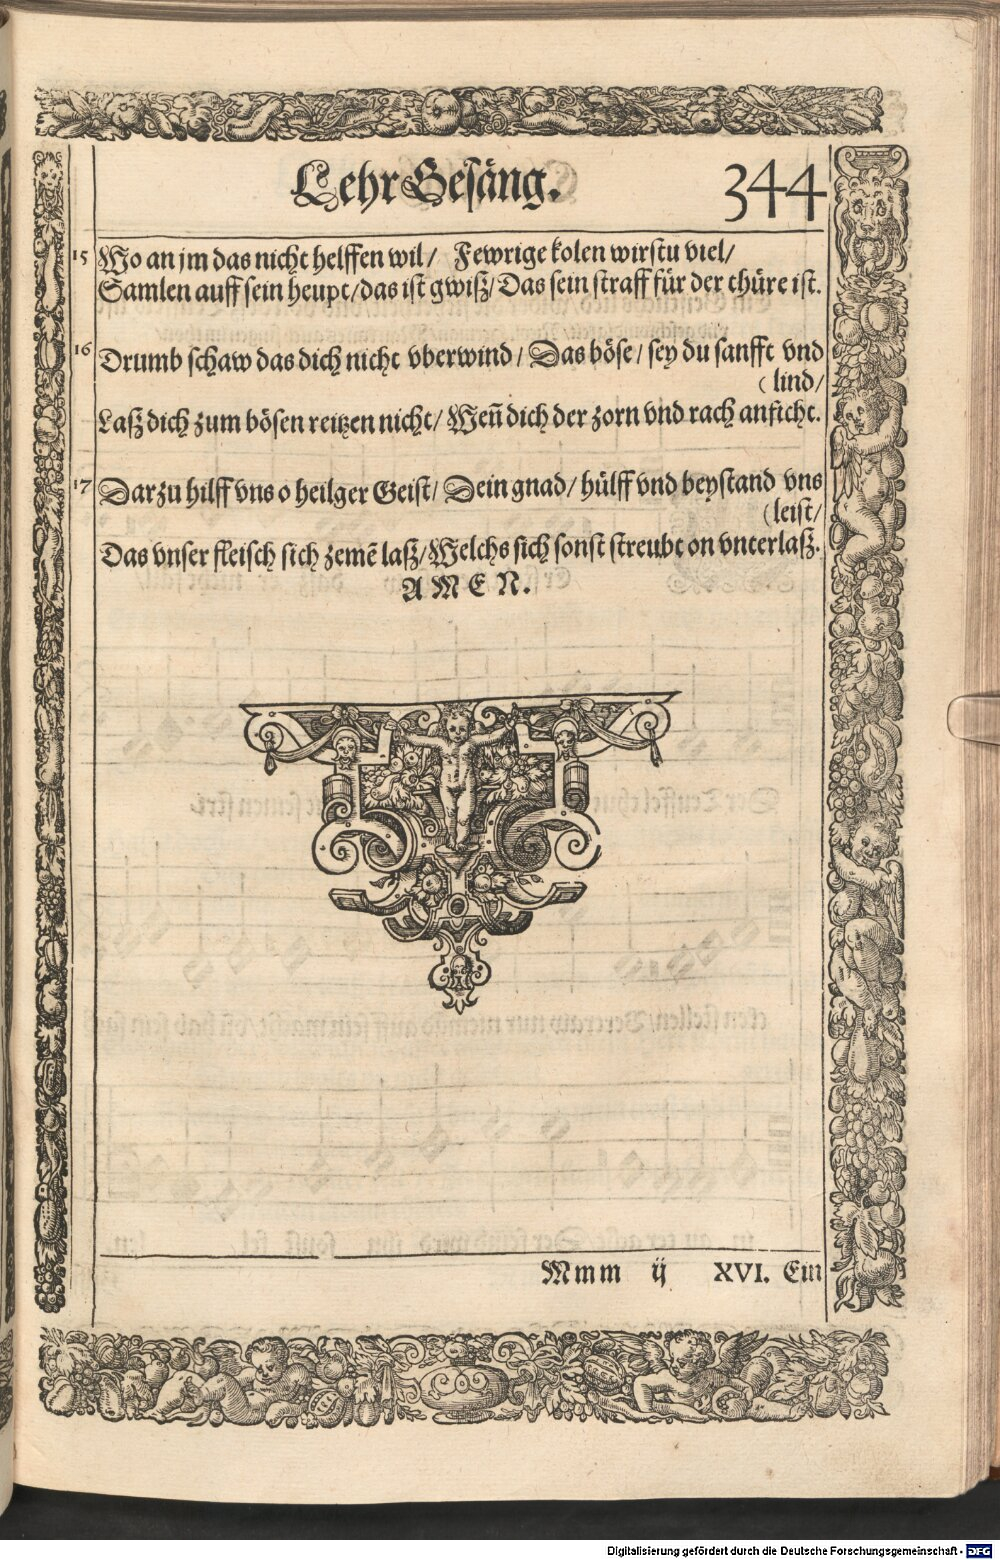 Lehr Gesäng. 344
15 Wo an jm das nicht helffen wil/ Fewrige kolen wirstu viel/
Samlen auff sein heupt/das ist gwiß/Das sein straff für der thüre ist.
16 Drumb schaw das dich nicht vberwind/ Das böse/ sey du sanfft vnd
(lind/
Laß dich zum bösen reitzen nicht/ Weñ dich der zorn vnd rach anficht.
17 Darzu hilff vns o heilger Geist/ Dein gnad/ hülff vnd beystand vns
(leist/
Das vnser fleisch sich zemē laß/Welchs sich sonst streubt on vnterlaß.
AMEN.
Mmm ij XVI. Ein
Digitalisierung gefördert durch die Deutsche Forschungsgemeinschaft - DFG